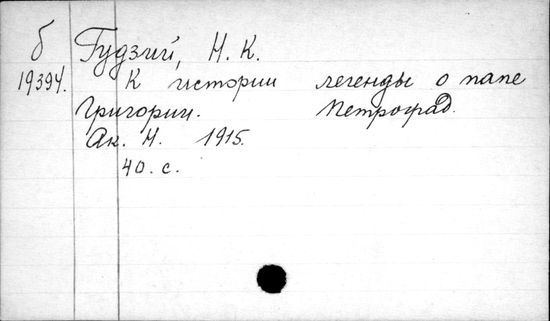 б Гудзий, Н. К.
19394. К истории легенды о папе
Григории. Петроград.
Ак. Н. 1915.
40. с.